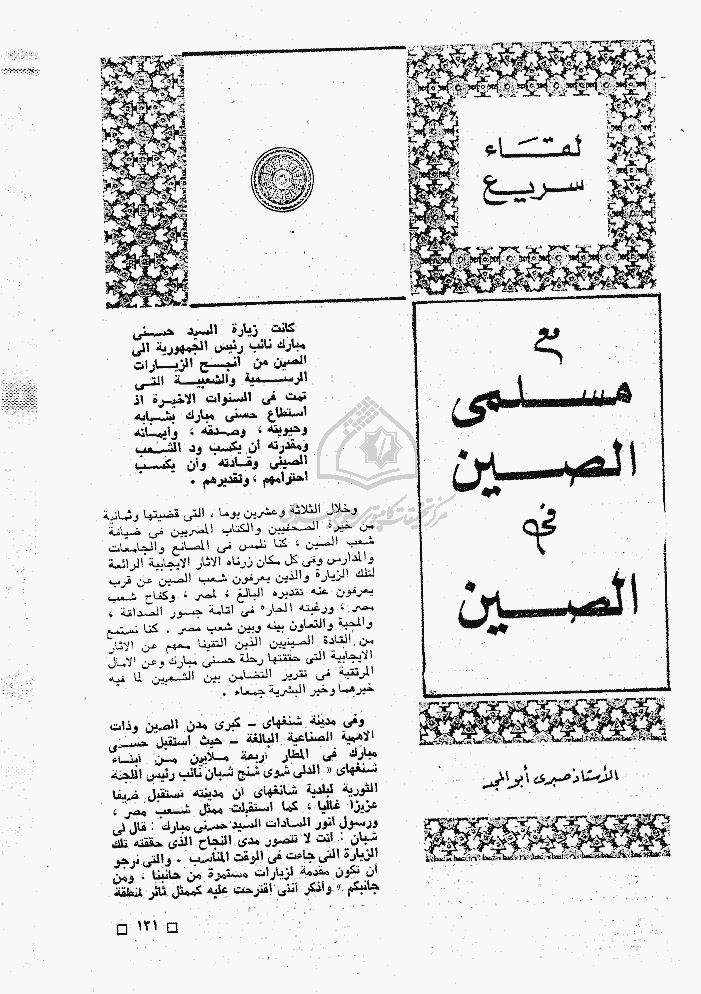 لقـــاء
سريع
مع
مسلمى
الصين
فى
الصين
الأستاذ صبرى أبو المجد
كانت زيارة السيد حسـنى
مبارك نائب رئيس الجمهورية الى
الصين من أنجـح الزيـارات
الرســمية والشعبيــة التـى
تمت فى السنوات الاخيـرة اذ
استطاع حسنى مبارك بشـبابه
وحيويته ، وصـدقه ، وايمـانه
ومقدرته أن يكسب ود الشـعب
الصينى وقـادته وأن يكسـب
احترامهم ، وتقديرهم .
وخلال الثلاثة وعشرين يوما ، التى قضيتها وثمانية
من خيرة الصحفيين والكتاب المصريين فى ضيافة
شعب الصين ، كنا نلمس فى المصانع والجامعات
والمدارس وفى كل مكان زرناه الاثار الايجابية الرائعة
لتلك الزيارة والذين يعرفون شعب الصين عن قرب
يعرفون عنه تقديره البالغ ، لمصر ، وكفاح شعب
مصر ، ورغبته الحارة فى اقامة جسور الصداقة ،
والمحبة والتعاون بينه وبين شعب مصر . كنا نستمع
من القادة الصينيين الذين التقينا معهم عن الاثار
الايجابية التى حققتها رحلة حسنى مبارك وعن الآمال
المرتقبة فى تقرير التضامن بين الشعبين لما فيه
خيرهما وخير البشرية جمعاء .
وفى مدينة شنغهاى ــ كبرى مدن الصين وذات
الاهمية الصناعية البالغة ــ حيث استقبل حسـنى
مبارك فى المطار أربعة مـلايين مـن أبنـاء
شنغهاى « الدلى شوى شنج شبان نائب رئيس اللجنة
الثورية لبلدية شانغهاى ان مدينته تستقبل ضيفا
عزيزا غاليا ، كما استقبلت ممثل شـعب مصر ،
ورسول أنور السادات السيد حسنى مبارك : قال لى
شبان : أنت لا تتصور مدى النجاح الذى حققته تلك
الزيارة التى جاءت فى الوقت المناسب . والتى نرجو
أن تكون مقدمة لزيارات مستمرة من جانبنا ، ومن
جانبكم » وأذكر أننى اقترحت عليه كممثل ثائر لمنطقة
□ ١٢١ □